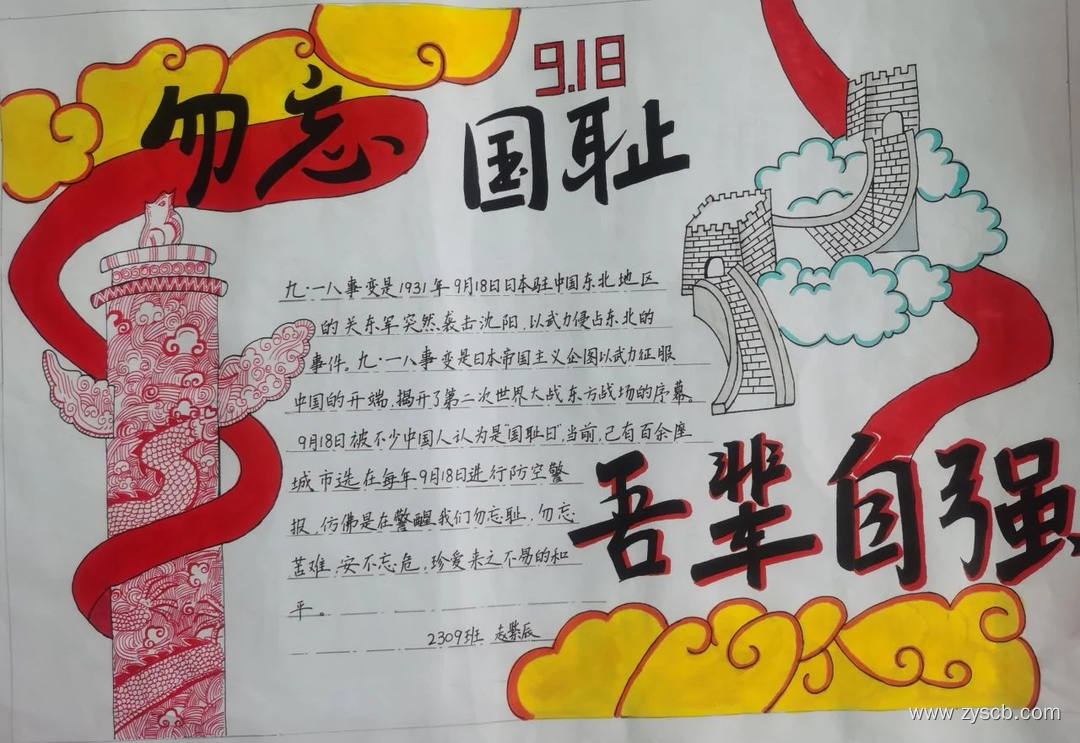 勿忘
9.18
国耻
九·一八事变是1931年9月18日日本驻中国东北地区
的关东军突然袭击沈阳,以武力侵占东北的
事件。九·一八事变是日本帝国主义企图以武力征服
中国的开端,揭开了第二次世界大战东方战场的序幕。
9月18日被不少中国人认为是"国耻日",当前,已有百余座
城市选在每年9月18日进行防空警
报,仿佛是在警醒我们勿忘耻,勿忘
苦难,安不忘危,珍爱来之不易的和
平。
2309班
吾辈自强
www.zyscb.com